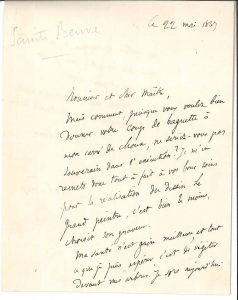 Sainte Beuve
ce 22 mai 1857
Monsieur et cher Maître,
Mais comment puisque vous voulez bien
donner votre coup de baguette à
mon carré de choux, ne seriez-vous pas
souverain dans l'exécution ? Je m'en
remets donc tout à fait à vos bons soins
pour la réalisation du dessin. Le
grand peintre, c'est bien le moins,
choisit son graveur.
Ma santé n'est guère meilleure et tout
ce que je puis espérer c'est de végéter
devant mes arbres. Je aujourd'hui